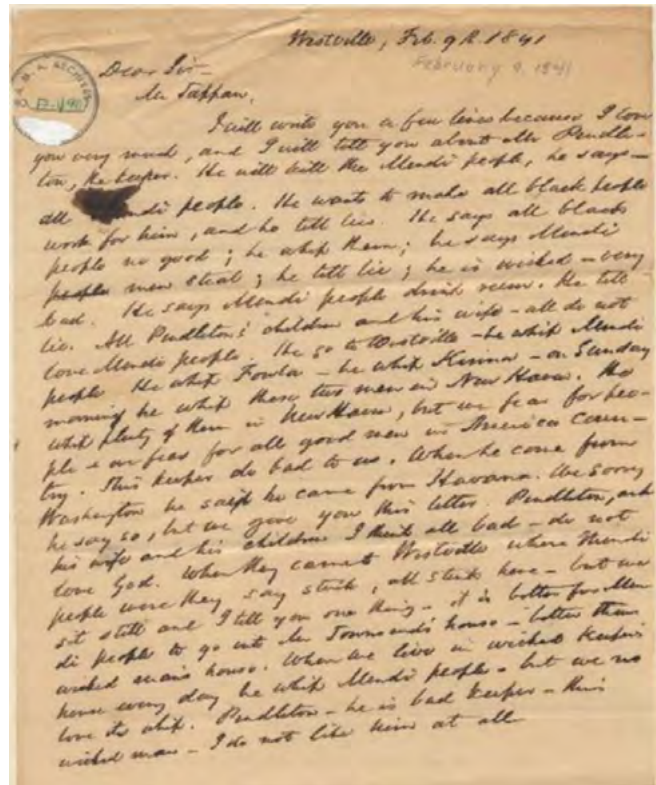 Westville, Feb. 9th. 1841
February 9, 1841
Dear Sir—
Mr Tappan,
I will write you a few lines because I love
you very much, and I will tell you about Mr Pendle-
ton, the keeper. He will kill the Mendi people, he says—
all Mendi people. He wants to make all black people
work for him, and he tell lie. He says all black
people no good; he whip them; he says Mendi
people men steal; he tell lie; he is wicked—very
bad. He says Mendi people drink rum. He tell
lie. All Pendleton's children and his wife—all do not
love Mendi people. He go to Westville—he whip Mendi
people He whip Fowla—he whip Kinna—on Sunday
morning he whip these two men in New Haven. He
whip plenty of them in New Haven, but we fear for peo-
ple & our fear for all good men in America coun-
try. This keeper do bad to us. When he come from
Washington he said he came from Havana. We sorry
he say so, but we give you this letter. Pendleton, and
his wife and his children I think all bad—do not
love God. When they came to Westville where Mendi
people were they say stink, all stink here—but we
sit still and I tell you one thing—it is better for Men
di people to go into Mr Townsend's house—better than
wicked man's house. When we live in wicked keeper's
house every day he whip Mendi people—but we no
love the whip. Pendleton—he is bad keeper—this
wicked man—I do not like him at all